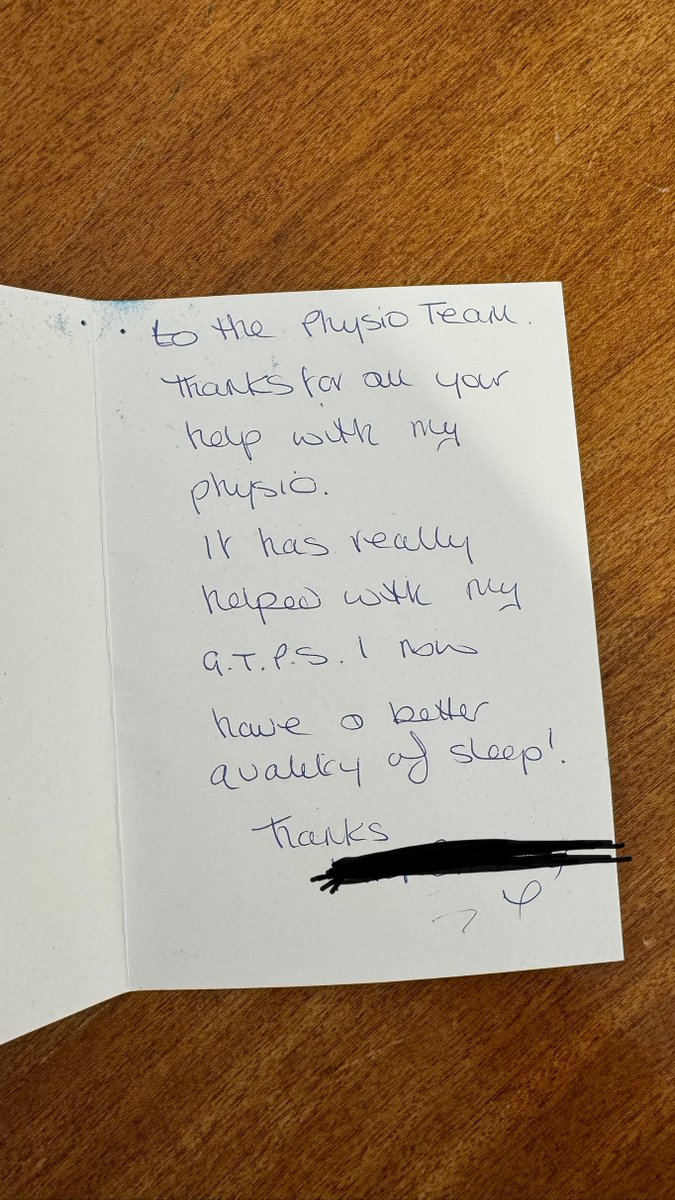 to the Physio Team.
Thanks for all your
help with my
physio.
It has really
helped with my
G.T.P.S. I now
have a better
quality of sleep!.
Thanks